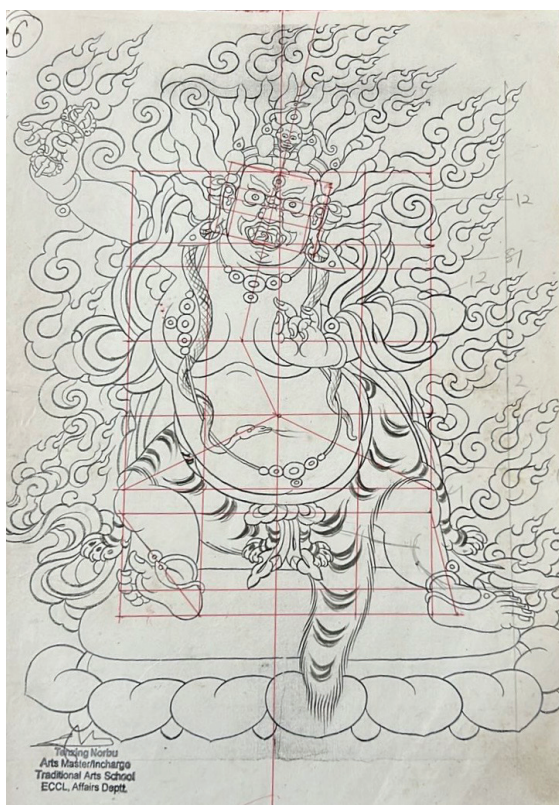 6
12
12
2
Tenzing Norbu
Arts Master/Incharge
Traditional Arts School
ECCL, Affairs Deptt.